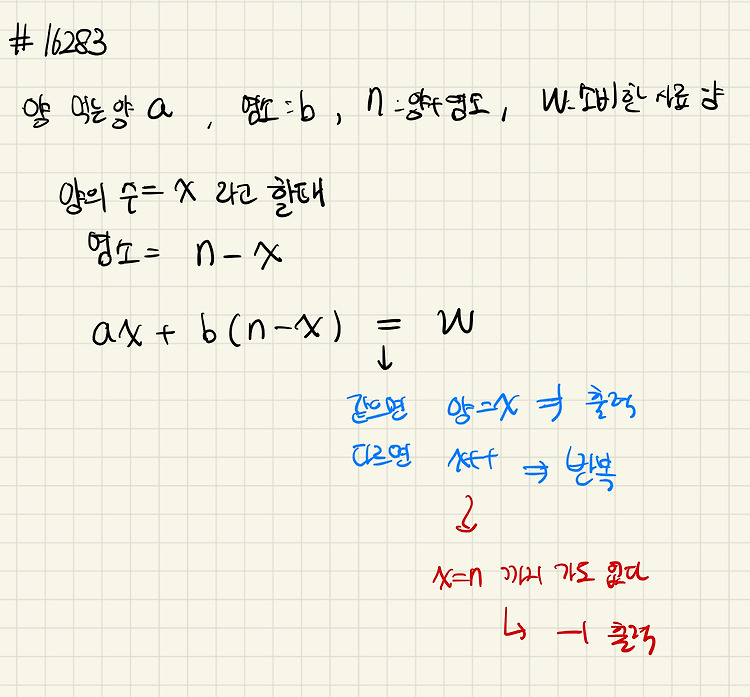 # 16283
양 먹는양 a , 염소=b, n=양+염소, w=소비한 사료 양
양의 수= x 라고 할때
염소= n-x
ax + b(n-x) = w
↓
같으면 양=x ⇒ 출력
다르면 x++ ⇒ 반복
↓
x=n 까지 가도 없다
↳ -1 출력